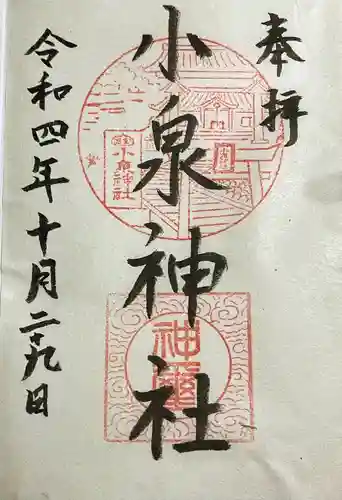 奉拝
小泉神社
令和四年十月二十九日
小泉神社
神璽